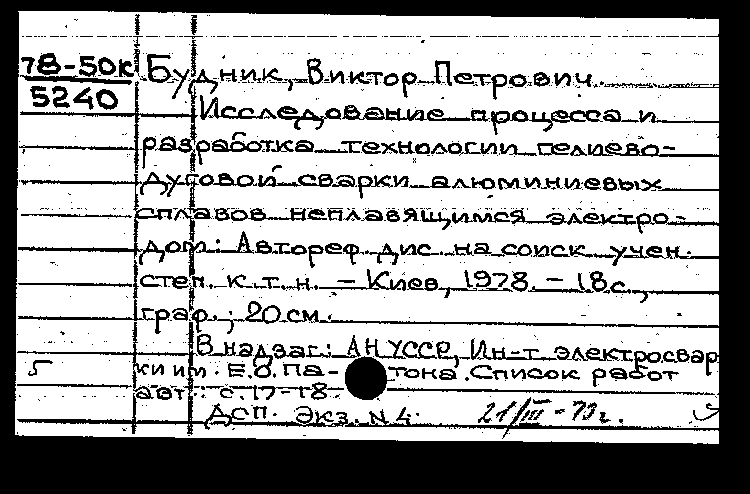 78-50К Будник, Виктор Петрович.
5240
Исследование процесса и
разработка технологии гелиево-
дуговой сварки алюминиевых
сплавов неплавящимся электро-
дом: Автореф. дис. на соиск. учен.
степ. к.т.н. – Киев, 1978. – 18с.,
граф.; 20см.
В надзаг.: АН УССР, Ин-т электросвар
5 ки им. Е.О. Па-тона. Список работ
авт.: с. 17-18.
ДСП. Экз. N 4.